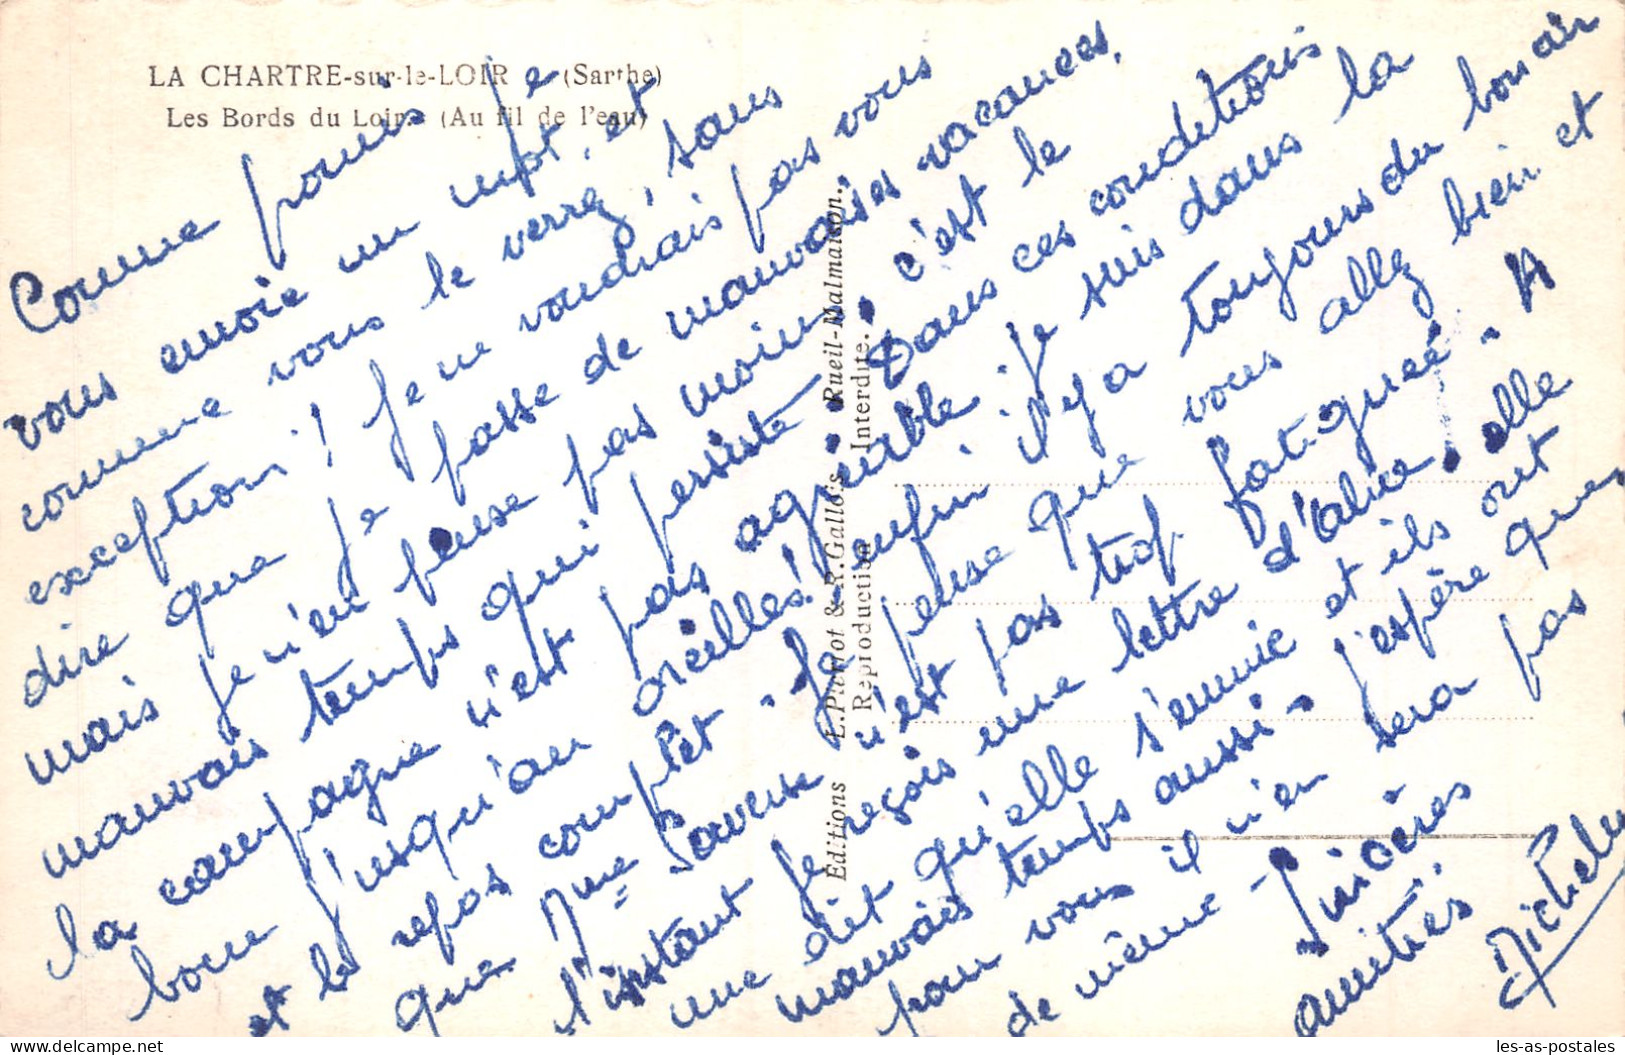 LA CHARTRE-sur-le-LOIR - (Sarthe)
Les Bords du Loir. (Au fil de l'eau)
Comme promis je
vous envoie un mot, et
comme vous le verrez, sans
exception ! Je ne voudrais pas vous
dire que je passe de mauvaises vacances,
mais je n'en pense pas moins : c'est le
mauvais temps qui persiste. Dans ces conditions
la campagne n'est pas agréable ; je suis dans la
boue jusqu'au oreilles ! enfin il y a toujours du bon air
et le repos complet. Je pense que vous allez bien et
que Mme n'est pas trop fatiguée. A
l'instant je reçois une lettre d'Alice, elle
me dit qu'elle s'ennuie et ils ont
mauvais temps aussi. J'espère que,
pour vous il n'en sera pas
de même.
Sincères
amitiés.
Editions L. Pivot & R. Gallois Rueil-Malmaison.
Reproduction Interdite.
delcampe.net
les-as-postales